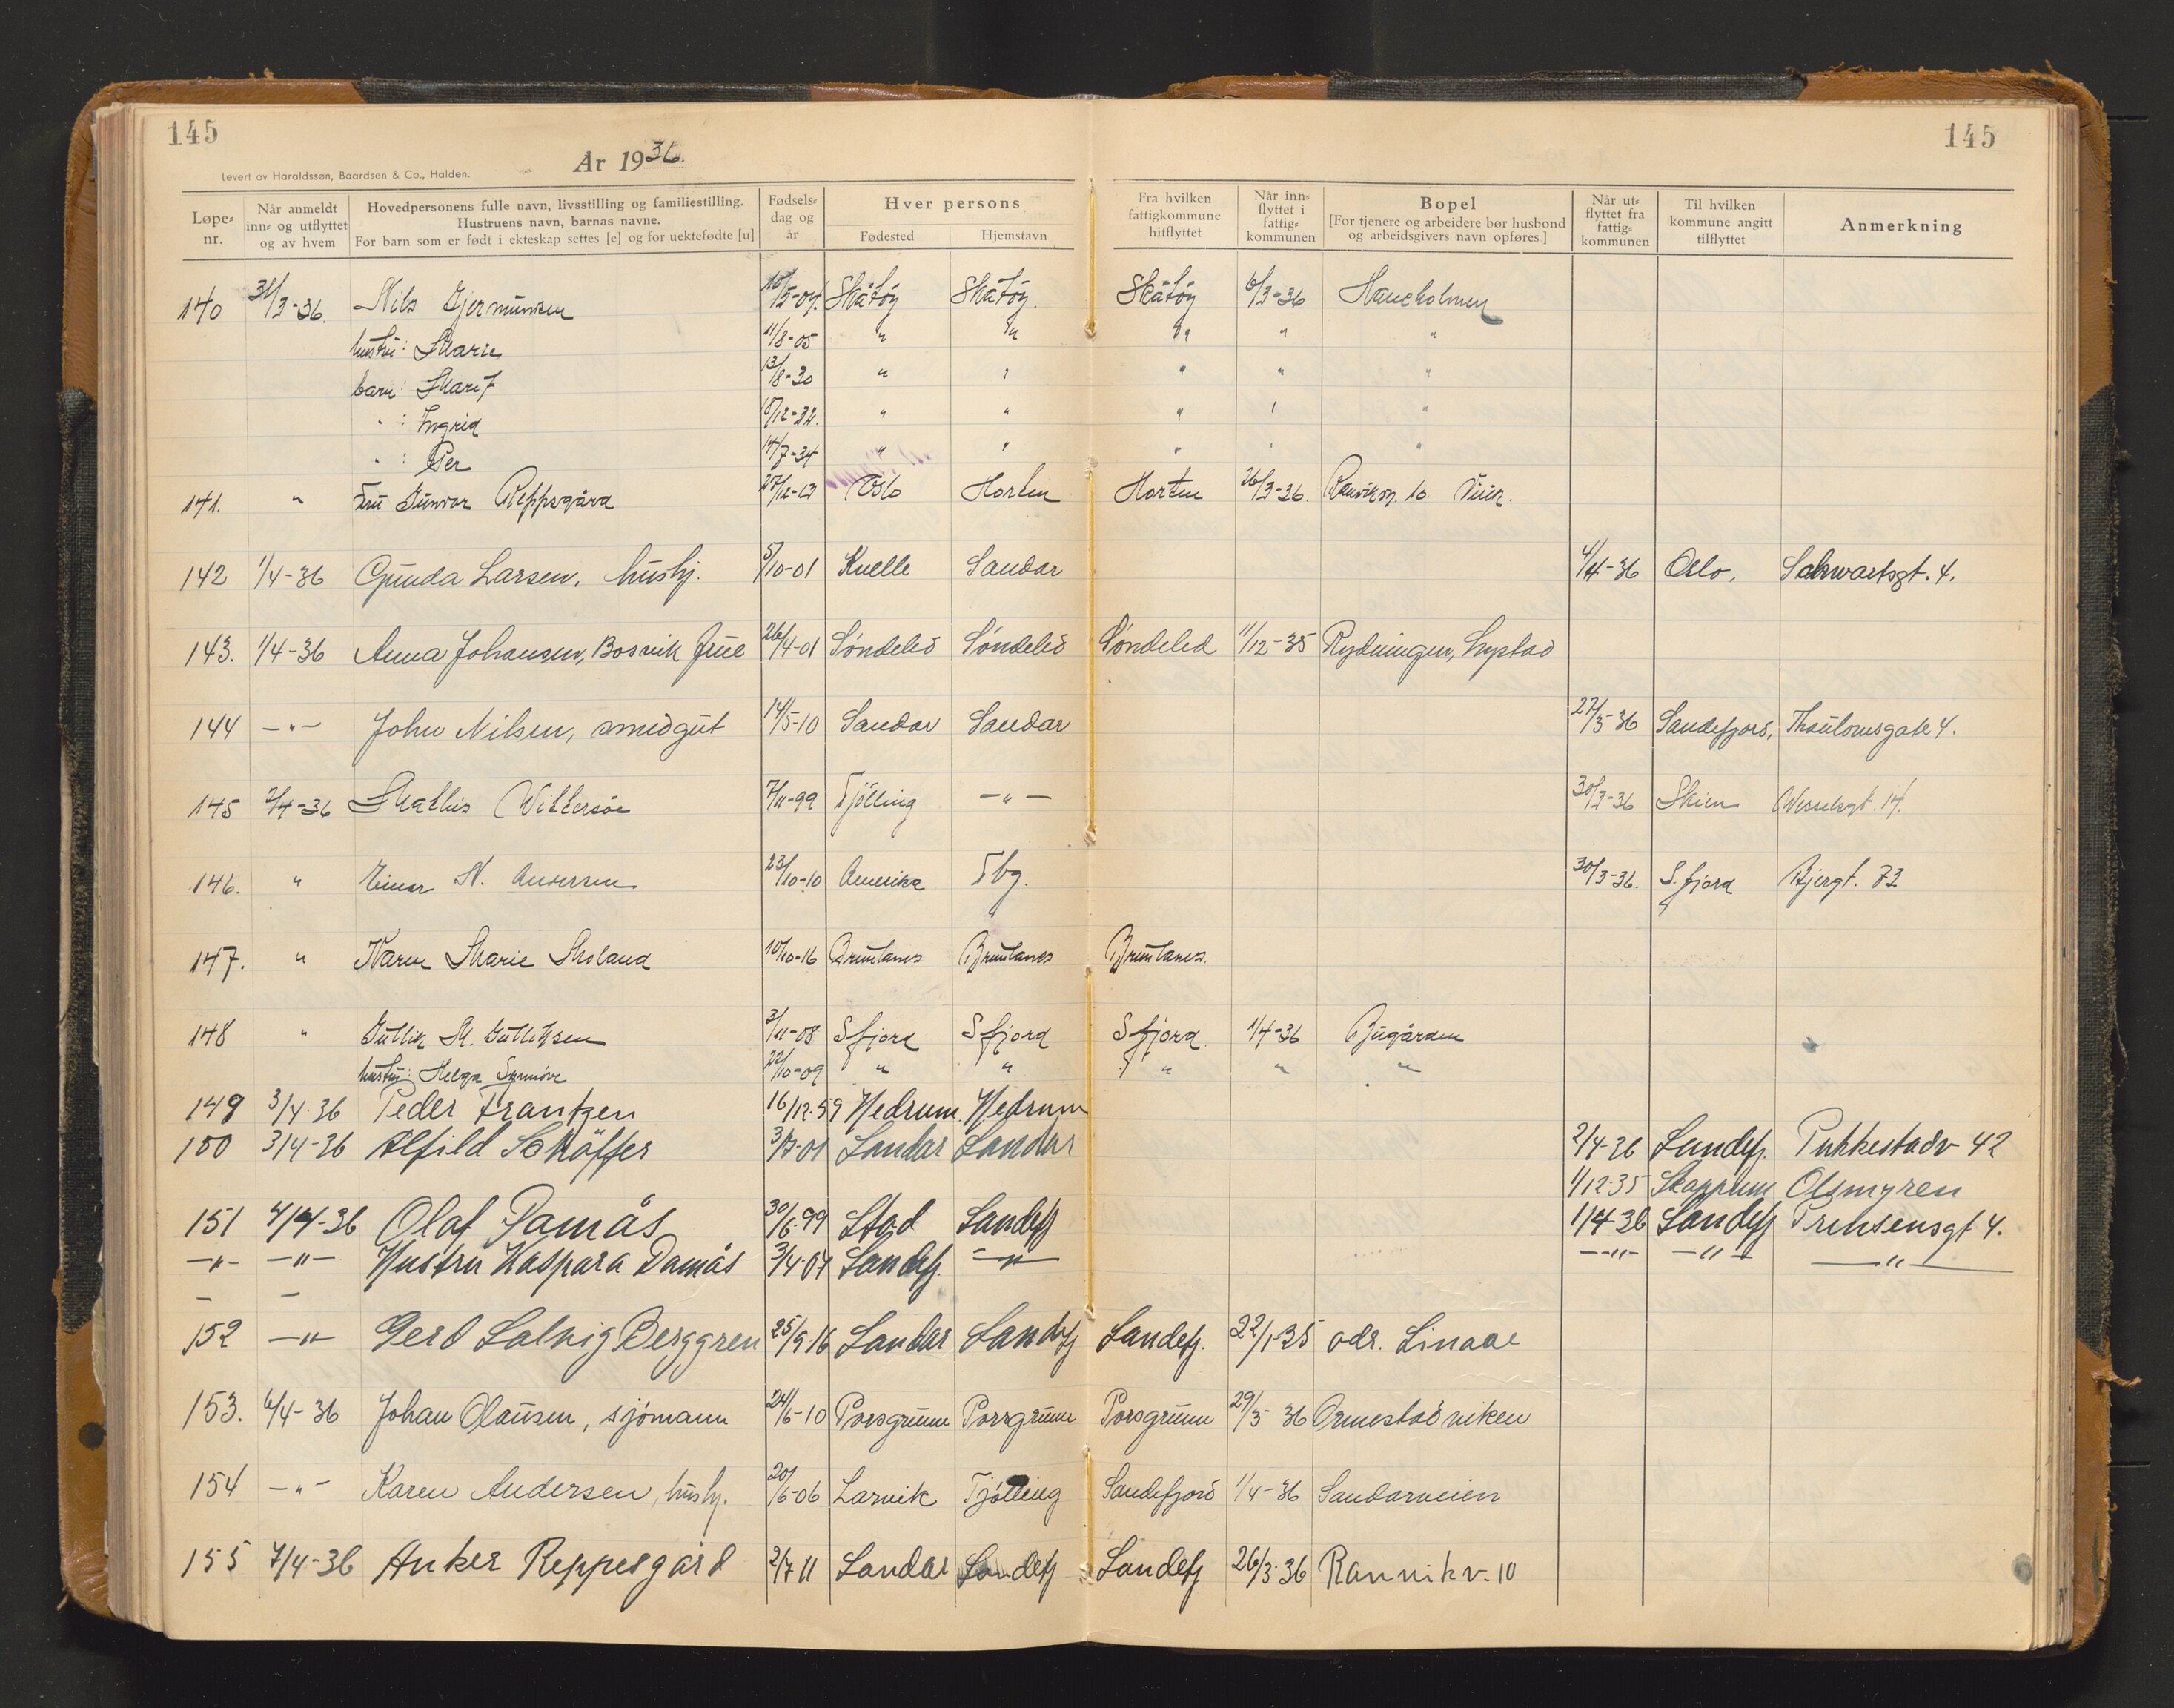 145
145
År 1936.
Levert av Haraldssøn, Baardsen & Co., Halden.
Løpe-nr. Når anmeldt inn- og utflyttet og av hvem Hovedpersonens fulle navn, livsstilling og familiestilling. Hustruens navn, barnas navne. For barn som er født i ekteskap settes [e] og for uektefødte [u] Fødsels-dag og år Hver persons Fødested Hjemstavn Fra hvilken fattigkommune hitflyttet Når inn-flyttet i fattig-kommunen Bopel [For tjenere og arbeidere bør husbond og arbeidsgivers navn opføres] Når ut-flyttet fra fattig-kommunen Til hvilken kommune angitt tilflyttet Anmerkning
140 31/3-36. Nils Gjermundsen 10/5-04. Skåtøy Skåtøy. Skåtøy 6/3-36 Haneholmen
hustru: Marie 11/8-05 " " " " "
barn: Marit 13/8-30 " " " " "
" : Ingrid 18/12-32. " " " " "
" : Per 14/7-34 " " " " "
141. " Fru Gunvor Reppesgård 27/12-13 Oslo Horten Horten 26/3-36. Ranvikv. 10
142 1/4-36 Gunda Larsen, hushj. 5/10-01 Kvelle Sandar 4/4-36 Oslo, Schwartsgt. 4.
143. 1/4-36 Anna Johansen, Bosvik frue 26/4-01 Søndeled Søndeled Søndeled 11/12-35 Rydningen, Lystad
144 -"- John Nilsen, smedgut 14/5-10 Sandar Sandar 27/3-36 Sandefjord, Thaulowsgate 4.
145 2/4-36 Mathis Wittersøe 7/11-99 Tjölling -"- 30/3-36 Skien Wesselsgt. 14.
146. " Einar N. Andersen 23/10-10 Amerika Tbg. 30/3-36. S.fjord Bjergt. 72
147. " Karen Marie Moland 10/10-16 Brunlanes Brunlanes Brunlanes.
148 " Gullik M. Gulliksen 3/11-08 S fjord S fjord S fjord. 1/4-36 Bugården
hustru: Helga Synnöve 22/10-09 " " " " "
149 3/4-36 Peder Frantzen 16/12-59 Hedrum Hedrum
150 3/4-36 Alfild Schäffer 3/7-01 Sandar Sandar 2/4-36 Sandefj. Pukkestadv 42
1/12-35 Skoppum Olsmyren
151 4/4-36 Olaf Damås 30/6-99 Stod Sandefj 1/4-36 Sandefj Prinsensgt 4.
-"- -"- Hustru Kaspara Damås 3/4-07 Sandefj. -"- -"- -"- -"-
- -
152 -"- Gerd Solvig Berggren 25/9-16 Sandar Sandefj Sandefj. 22/1-35 adr. Linaae
153. 6/4-36 Johan Olausen, sjømann 24/6-10 Porsgrunn Porsgrunn Porsgrunn 29/3-36 Ormestadviken
154 -"- Karen Andersen, hushj. 20/6-06 Larvik Tjølling Sandefjord 1/4-36 Sandarveien
155 7/4-36 Anker Reppesgård 2/7 11 Sandar Sandefj Sandefj 26/3-36 Rannikv-10